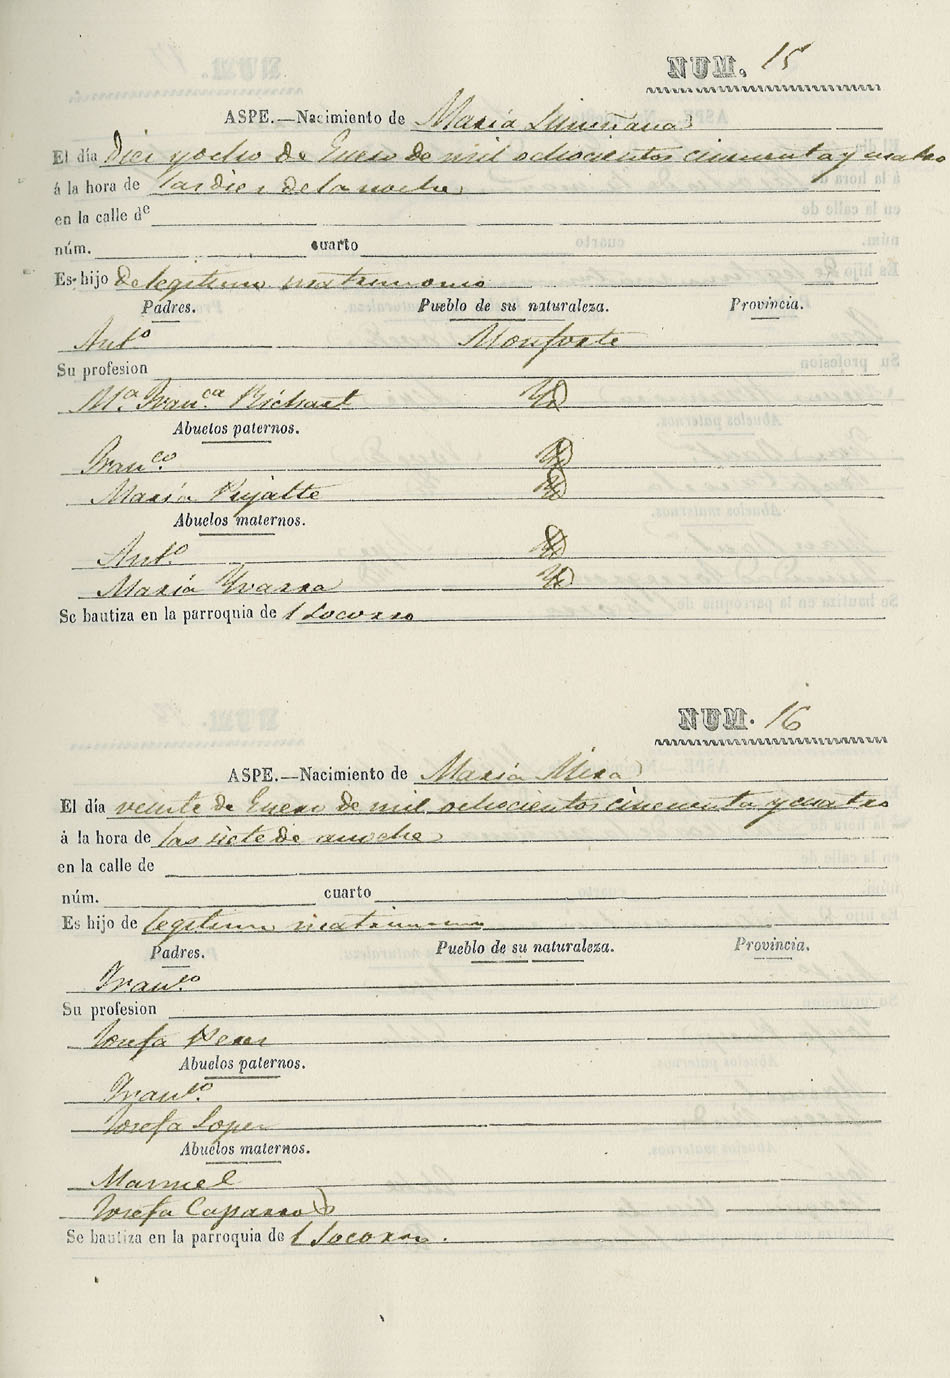 NUM. 15
ASPE.—Nacimiento de María Limiñana
El día Diez y ocho de Enero de mil ochocientos cincuenta y cuatro
á la hora de las diez de la noche
en la calle de
núm. cuarto
Es hijo de legitimo matrimonio
Padres. Pueblo de su naturaleza. Provincia.
Antº Monforte
Su profesion
Mª Franca Richart Yd
Abuelos paternos.
Franco Yd
María Pujalte Yd
Abuelos maternos.
Antº Yd
María Yvarra Yd
Se bautiza en la parroquia de l Socorro
NUM. 16
ASPE.—Nacimiento de María Mira
El día veinte de Enero de mil ochocientos cincuenta y cuatro
á la hora de las siete de anoche
en la calle de
núm. cuarto
Es hijo de legitimo matrimonio
Padres. Pueblo de su naturaleza. Provincia.
Franco
Su profesion
Josefa
Abuelos paternos.
Franco
Josefa Lopez
Abuelos maternos.
Manuel
Josefa Caparros
Se bautiza en la parroquia de l Socorro.